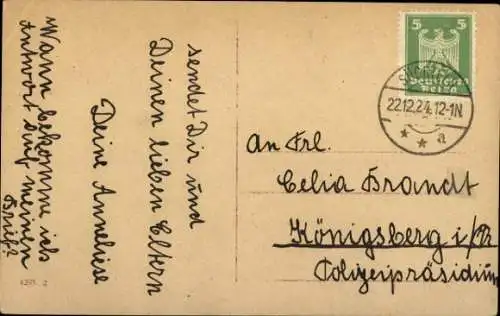 sendet Dir und
Deinen lieben Eltern
Deine Anneliese
Wann bekomme ich
Antwort auf meinen
Brief?
5 5
Deutsches
Reich
22.12.24.12-1N
* * a
An Frl.
Celia Brandt
Königsberg i/Pr.
Polizeipräsidium
4295 2